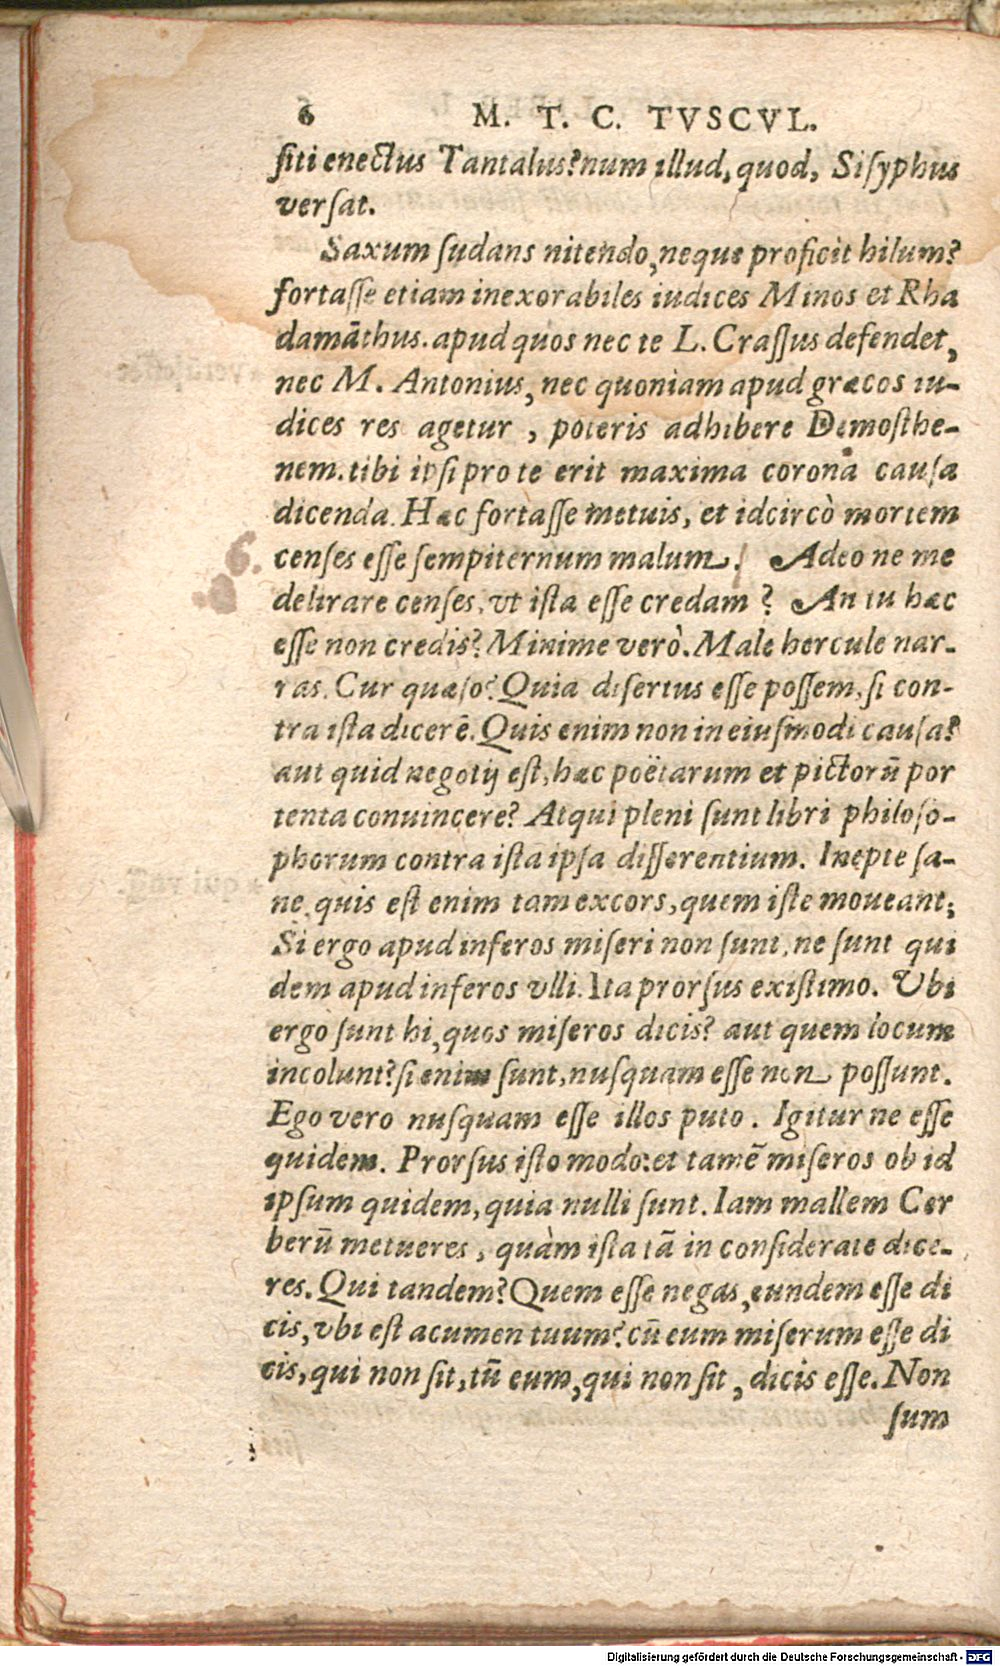 6 M. T. C. TVSCVL.
ſiti enectus Tantalus? num illud, quod, Siſyphus
verſat.
Saxum ſudans nitendo, neque proficit hilum?
fortaſſe etiam inexorabiles iudices Minos et Rha
damāthus. apud quos nec te L. Craſſus defendet,
nec M. Antonius, nec quoniam apud græcos iu-
dices res agetur, poteris adhibere Demoſthe-
nem. tibi ipſi pro te erit maxima corona cauſa
dicenda. Hæc fortaſſe metuis, et idcircò mortem
6. cenſes eſſe ſempiternum malum. Adeo ne me
delirare cenſes, vt iſta eſſe credam? An tu hæc
eſſe non credis? Minime verò. Male hercule nar-
ras. Cur quæſo? Quia diſertus eſſe poſſem, ſi con-
tra iſta dicerē. Quis enim non in eiuſmodi cauſa?
aut quid negotij eſt, hæc poëtarum et pictorū por
tenta conuincere? Atqui pleni ſunt libri philoſo-
phorum contra iſta ipſa diſſerentium. Inepte ſa-
ne. quis eſt enim tam excors, quem iſte moueant;
Si ergo apud inferos miſeri non ſunt, ne ſunt qui
dem apud inferos vlli. Ita prorſus exiſtimo. Vbi
ergo ſunt hi, quos miſeros dicis? aut quem locum
incolunt? ſi enim ſunt, nuſquam eſſe non poſſunt.
Ego vero nuſquam eſſe illos puto. Igitur ne eſſe
quidem. Prorſus iſto modo: et tamē miſeros ob id
ipſum quidem, quia nulli ſunt. Iam mallem Cer
berū metueres, quàm iſta tā in conſiderate dice-
res. Qui tandem? Quem eſſe negas, eundem eſſe di
cis, vbi eſt acumen tuum? cū eum miſerum eſſe di
cis, qui non ſit, tū eum, qui non ſit, dicis eſſe. Non
ſum
Digitalisierung gefördert durch die Deutsche Forschungsgemeinschaft - DFG